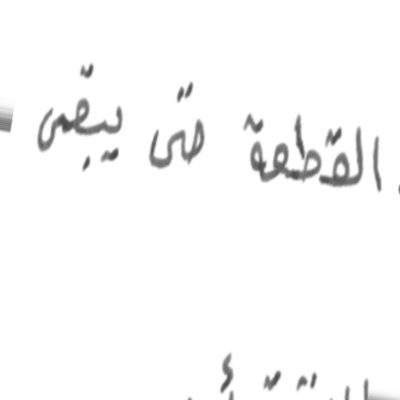 القطعة حتى يبقى